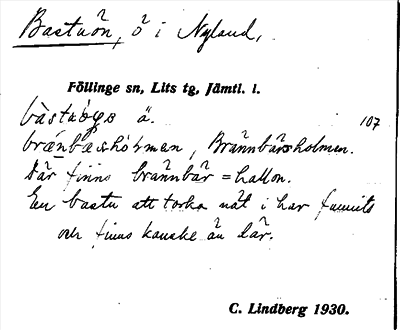 Bastuön, ö i Nyland,
Föllinge sn, Lits tg, Jämtl. l.
ä. 107
Brännbärsholmen.
Där finns brännbär = hallon.
En bastu att torka nät i har funnits
och finns kanske än där.
C. Lindberg 1930.